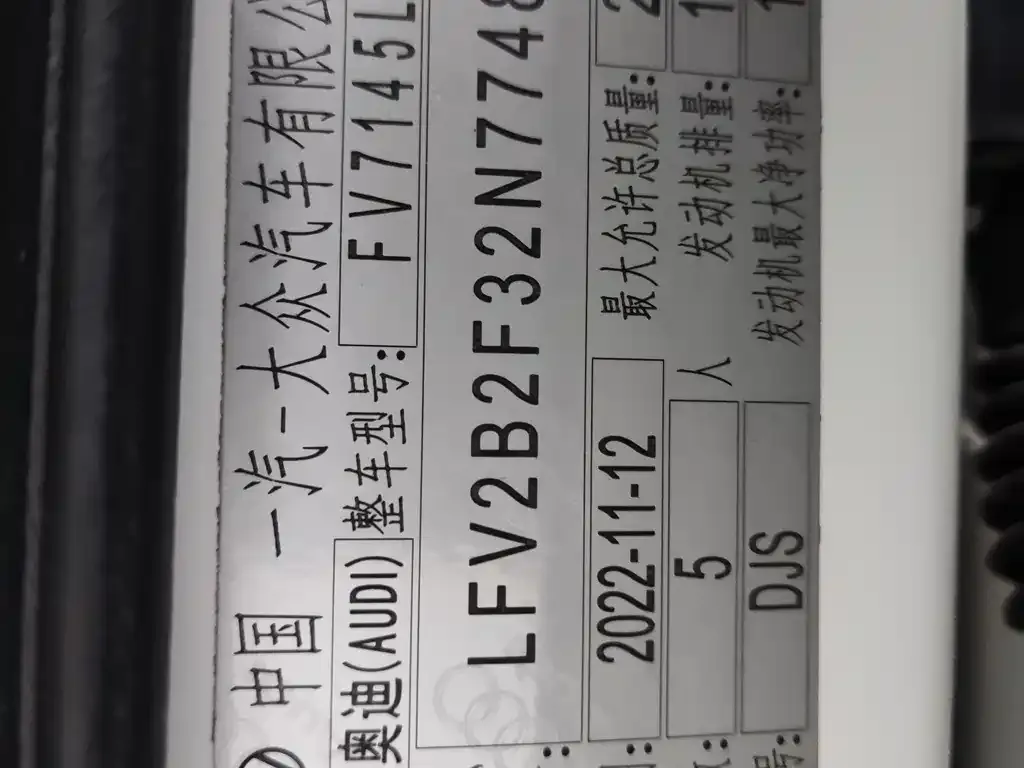 中国 一汽-大众汽车有限公
奥迪(AUDI) 整车型号: FV7145L
LFV2B2F32N7748
2022-11-12 最大允许总质量: 2
5 人 发动机排量: 1
号: DJS 发动机最大净功率: 1